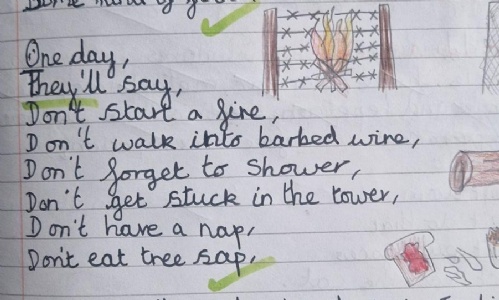 Some kind of
One day,
They'll say,
Don't start a fire,
Don't walk into barbed wire,
Don't forget to shower,
Don't get stuck in the tower,
Don't have a nap,
Don't eat tree sap,